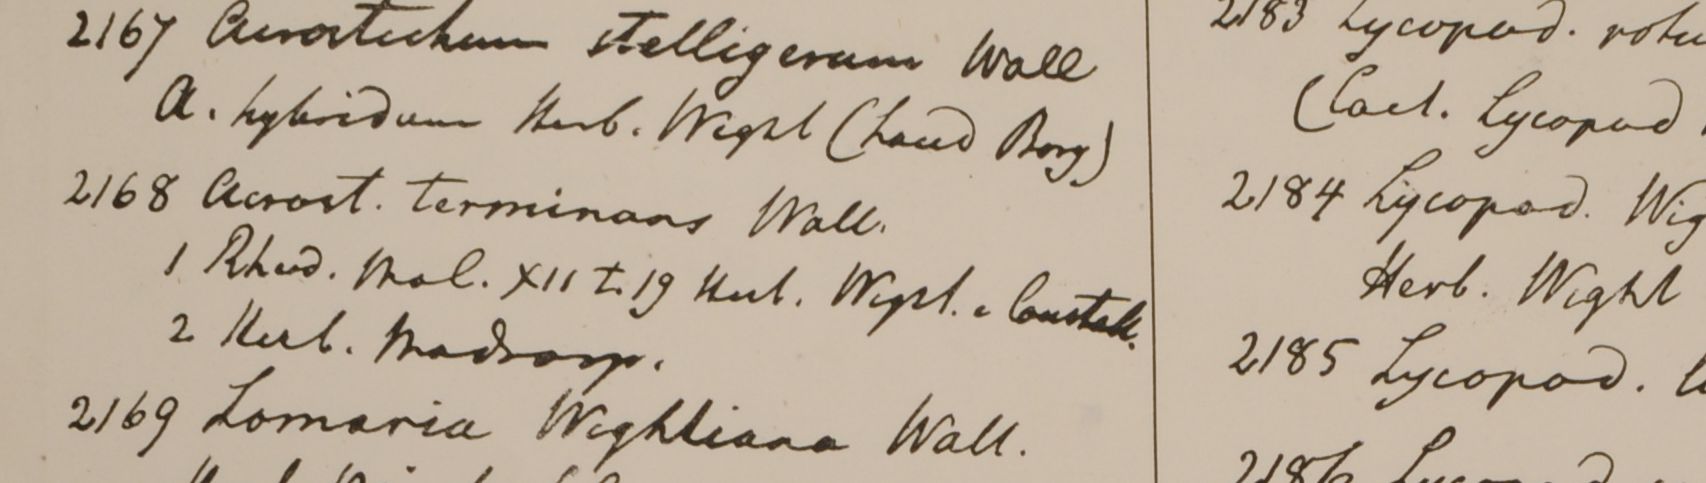 2167 Acrostichum stelligerum Wall
A. hybridum Herb. Wight (haud Bory)
2168 Acrost. terminans Wall.
1 Rheed. Mal. XII t. 19 Herb. Wight.
2 Herb. Madrasp.
2169 Lomaria Wightiana Wall.
2183 Lycopod.
Lycopod
2184 Lycopod. Wig
Herb. Wight
2185 Lycopod.
2186 Lycopod